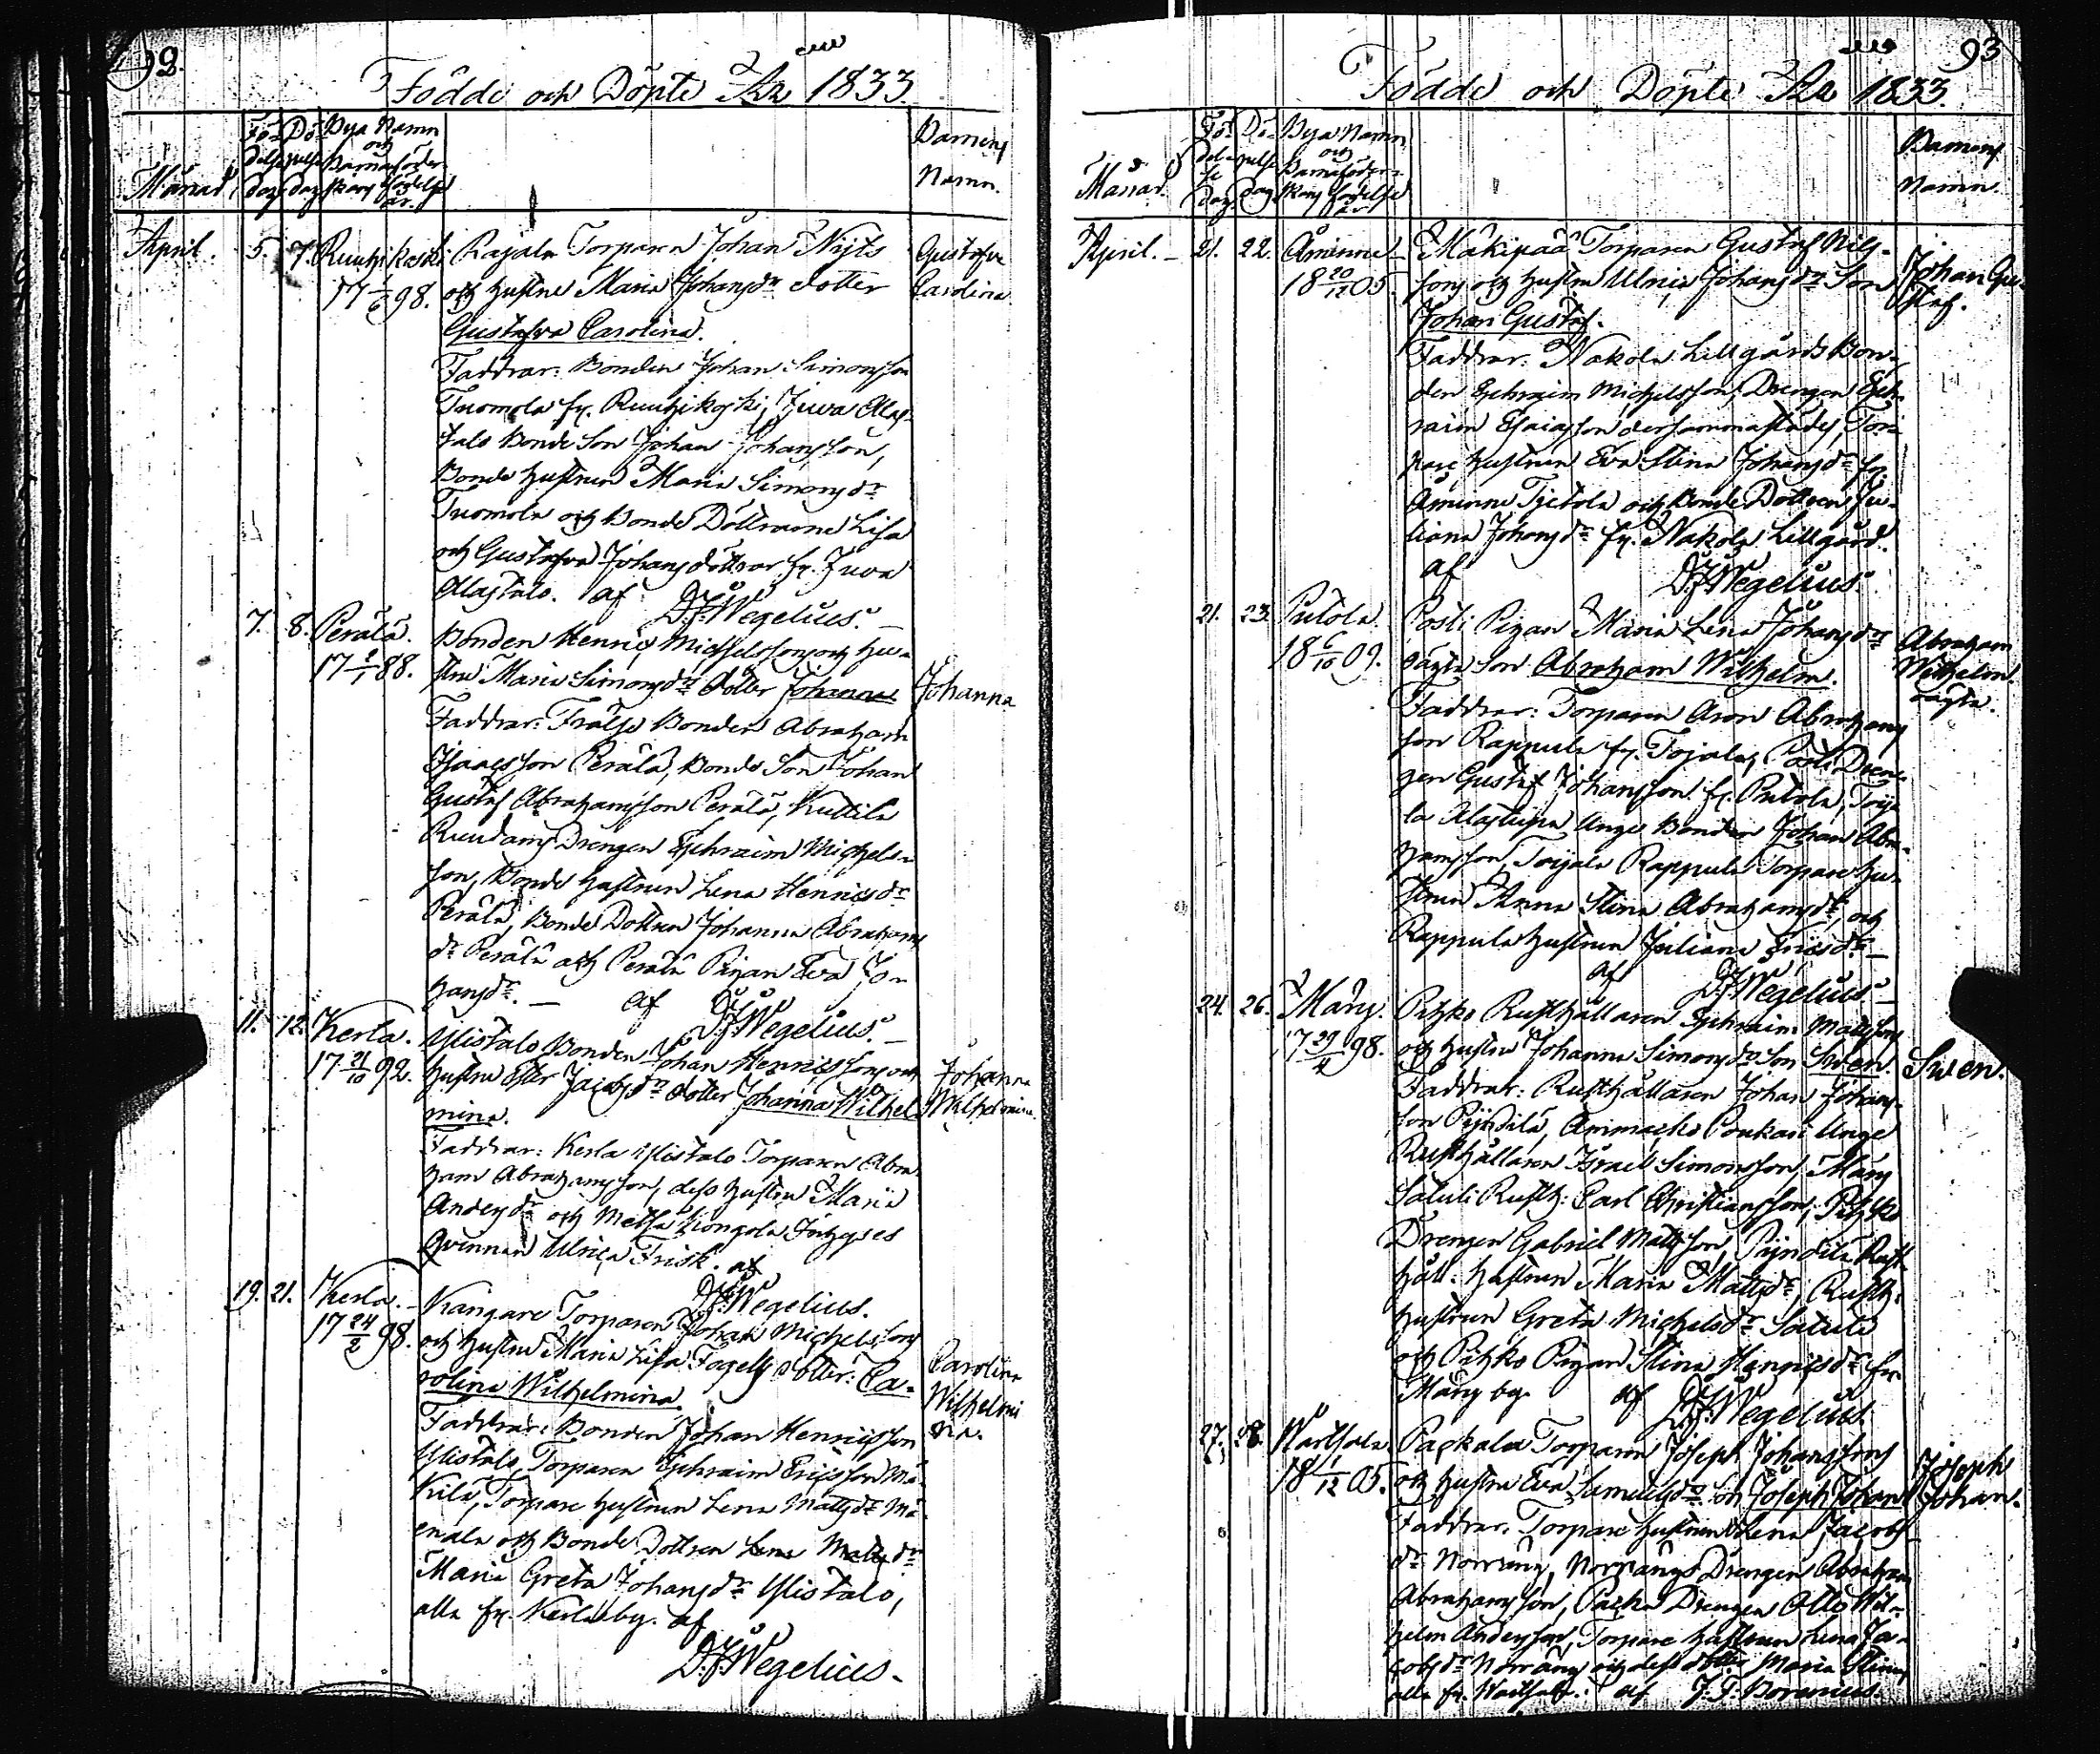 92.
Födde och Döpte År 1833.
Månad
Fö-
delse
dag
Dö-
pelse
dag
Bya Namn
och
Barnaföder-
skans födelse
år.
Barnens
Namn.
April. 5. 7. Ruutzikoski Rajala Torparen Johan Nijts
17 98. och hustru Maria Johansdr dotter
Gustafva Carolina.
Gustafva
Carolina
Faddrar: Bonden Johan Simonsson
Tuomola fr. Ruutzikoski, Juva Alas-
talo Bonde Son Johan Johansson,
Bonde hustrun Maria Simonsdr
Tuomola och Bonde Döttrarne Lisa
och Gustafva Johansdöttrar fr. Juva
Alastalo. af D.J. Wegelius.
7. 8. Perälä. Bonden Henric Michelsson och hu-
17 88. stru Maria Simonsdr dotter Johanna
Johanna
Faddrar: Frälse Bonden Abraham
Isaacsson Perälä, Bonde Son Johan
Gustaf Abrahamsson Perälä, Kuttila
Ruudams Drengen Ephraim Michels-
son, Bonde hustrun Lena Henricsdr
Perälä, Bonde Dottren Johanna Abrahams
dr Perälä och Perälä Pigan Eva Jo-
hansdr. — af D.J. Wegelius. —
11. 12. Kerla. Ylistalo Bonden Johan Henricssons och
17 21/10 92. hustru Ester Jacobsdr dotter Johanna Wilhel-
mina.
Johanna
Wilhelmina.
Faddrar: Kerla Ylistalo Torparen Abra-
ham Abrahamsson, dess hustru Maria
Andersdr och Metsä Inhyses
Qvinnan Ulrica Frisk. af
D.J. Wegelius.
19. 21. Kerla. Kangare Torparen Johan Michelssons
17 24/2 98. och hustru Maria Lisa Fagells dotter: Ca-
rolina Wilhelmina.
Carolina
Wilhelmi
na.
Faddrar: Bonden Johan Henricsson
Ylistalo, Torparen Ephraim Ericsson Mä-
kilä, Torpare hustrun Lena Mattsdr Mä-
enala och Bonde Dottren Lena Mattsdr
Maria Greta Johansdr Ylistalo,
alla fr. Kerla by. af
D.J. Wegelius.
93
Födde och Döpte År 1833.
Månad.
Fö-
delse
dag
Dö-
pelse
dag
Bya Namn
och
Barnaföder-
skans födelse
år
Barnens
Namn.
April. 21. 22. Åminne Mäkipää Torparen Gustaf Nils-
18 20/12 05. sons och hustru Ulrica Johansdr Son
Johan Gustaf.
Johan Gu-
staf.
Faddrar: Nakola Lillgårds Bon-
den Ephraim Michelsson, Drengen Eph-
raim Esaiasson dersammastädes, Tor-
pare hustrun Eva Stina Johansdr fr.
Åminne Tjetola och Bonde Dottren Ju-
liana Johansdr fr. Nakola Lillgård.
af D.J. Wegelius.
21. 23. Putola. Posti Pigan Maria Lena Johansdrs
18 6/10 09. oägta son Abraham Wilhelm.
Abraham
Wilhelm.
oägta.
Faddrar: Torparen Aron Abrahams
son Rappula fr. Tojala, Posti Dren-
gen Gustaf Johansson fr. Putola, Toija-
la Alastupa Unge Bonden Johan Abra-
hamsson, Toijala Rappula Torpare hu-
strun Anna Stina Abrahamsdr, och
Rappula hustrun Juliana Ericsdr —
af D.J. Wegelius. —
24. 26. Märy. Pitzko Rusthållaren Ephraim Mattssons
17 29/4 98. och hustru Johanna Simonsdr Son Swen.
Swen.
Faddrar: Rusthållaren Johan Johans-
son Pijndilä, Unge
Rusthållaren Israel Simonsson, Märy
Satuli Rusth: Carl Christiansson, Pitzko
Drengen Gabriel Mattsson, Pijndilä Rust-
håll: hustrun Maria Mattsdr, Rusth:
hustrun Greta Michelsdr Satuli
och Pitzko Pigan Stina Henricsdr fr.
Märy by. af D.J. Wegelius.
27. 28. Wartsala. Paskala Torparen Joseph Johanssons
18 1/12 05. och hustru Eva Samuelsdr son Joseph Johan
Joseph
Johan.
Faddrar. Torpare hustrun Lena Jacobs
dr Norräng, Norrängs Drengen Abraham
Abrahamsson, Drengen Otto Wil-
helm Andersson, Torpare hustrun Lena Ja-
cobsdr Norräng och dess dotter Maria Stina,
alla fr. Wartsala. af